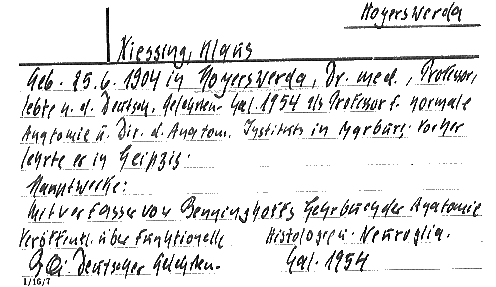 Hoyerswerda
Niessing, Klaus
Geb. 25.6.1904 in Hoyerswerda, Dr. med., Professor,
lebte n. d. Deutsch. Gelehrten-Kal. 1954 als Professor f. normale
Anatomie u. Dir. d. Anatom. Instituts in Marburg. Vorher
lehrte er in Leipzig.
Hauptwerke:
Mitverfasser von Benninghoffs Lehrbuch der Anatomie
Veröffentl. über funktionelle Histologie u. Neuroglia.
Deutscher Gelehrten-
Kal. 1954
1/16/7